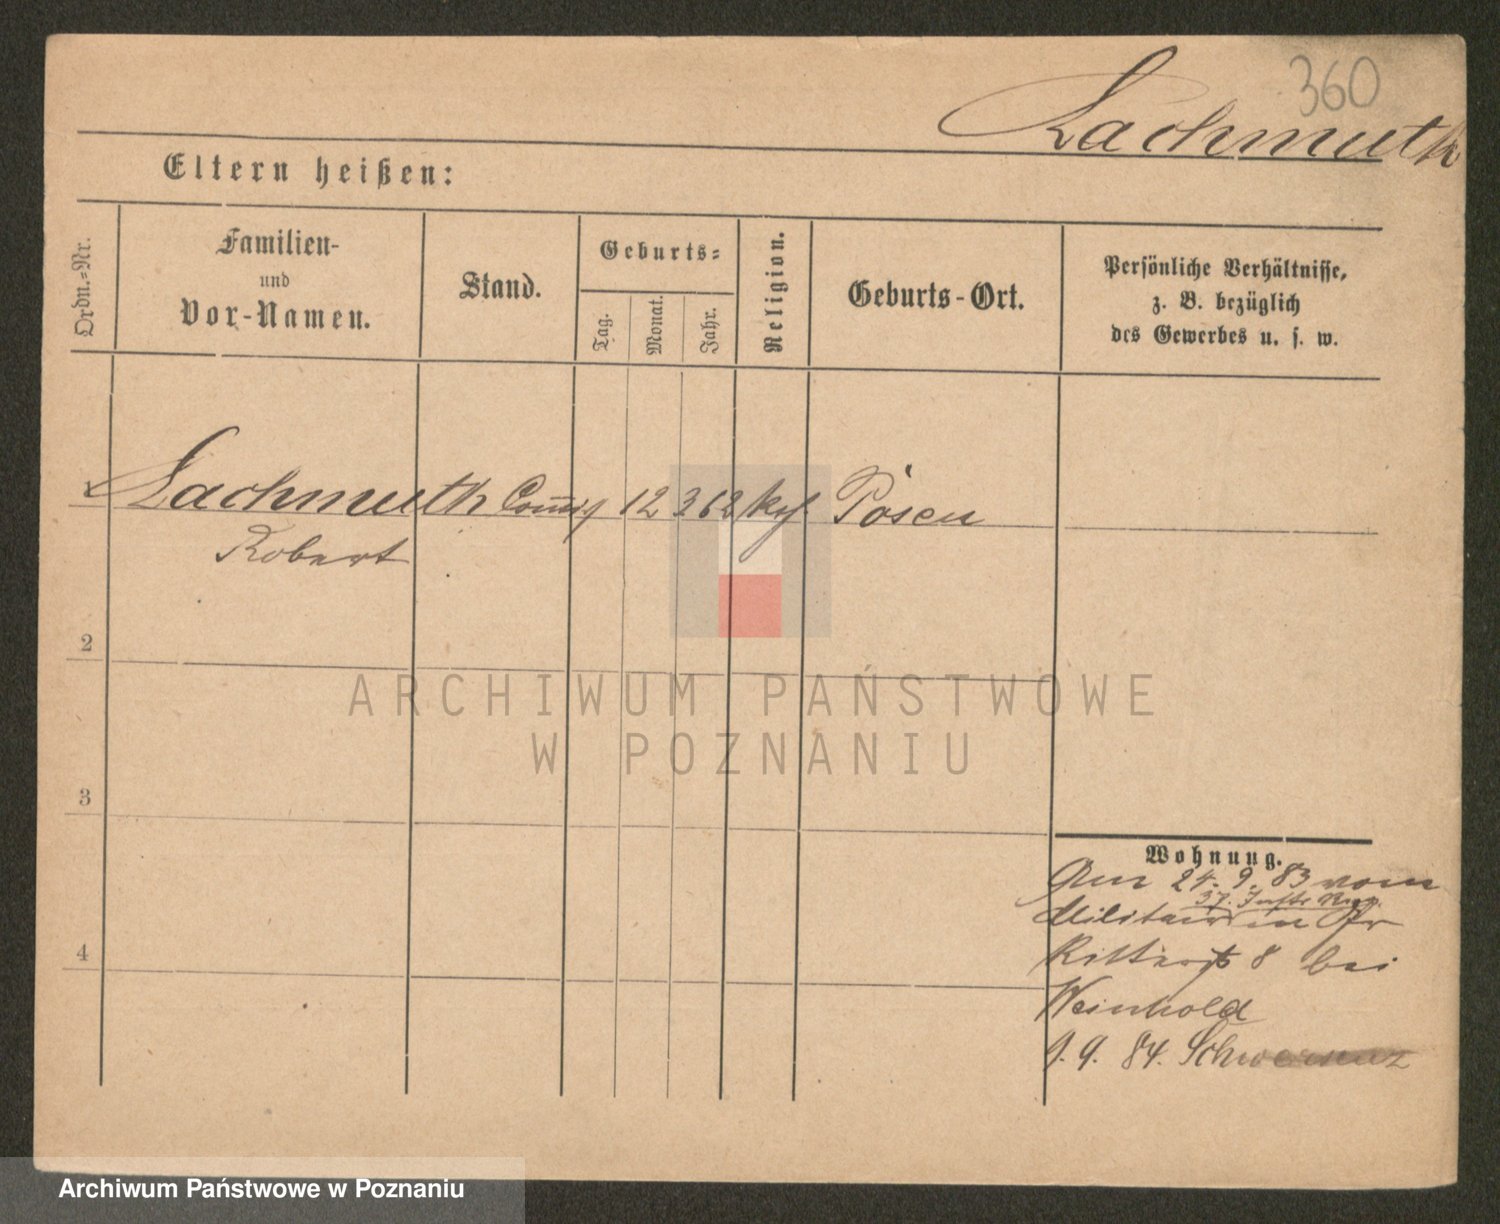 360
Lachmuth
Eltern heißen:
Ordn.-Nr.
Familien-
und
Vor-Namen.
Stand.
Geburts-
Tag.
Monat.
Jahr.
Religion.
Geburts-Ort.
Persönliche Verhältnisse,
z. B. bezüglich
des Gewerbes u. s. w.
Lachmuth 12 3 62 Posen
Robert
2
3
4
ARCHIWUM PAŃSTWOWE
W POZNANIU
Wohnung.
Am 24. 9. 83 vom
37. Inftr Reg.
Militair in Gr
Ritterstr 8 bei
Weinhold
9. 84. Schwersenz
Archiwum Państwowe w Poznaniu